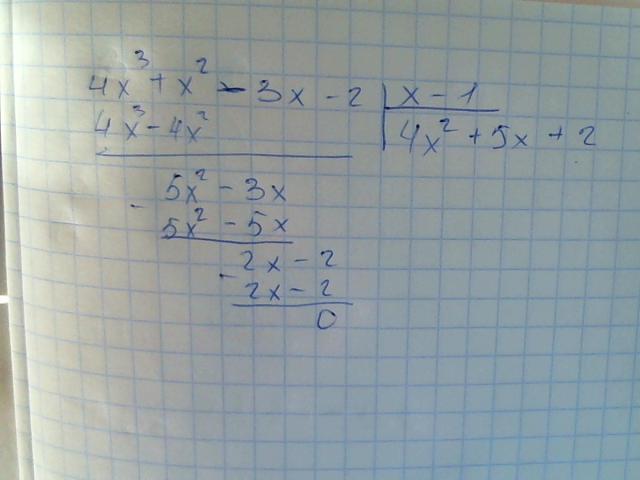 4x³ + x² - 3x - 2 | x - 1
4x³ - 4x² | 4x² + 5x + 2
- 5x² - 3x
5x² - 5x
- 2x - 2
2x - 2
0